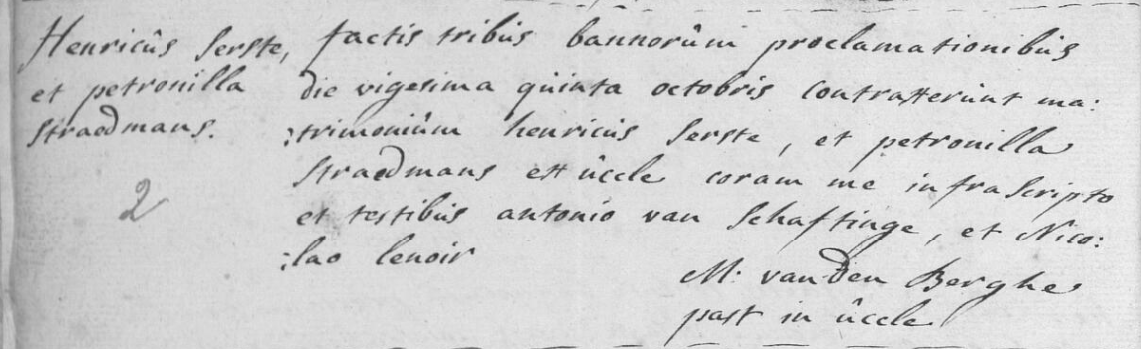 Henricûs Serste,
et petronilla
Straedmans.
2
factis tribûs bannorûm proclamationibûs
die vigesima quinta octobris contraxerûnt ma:
:trimoniûm henricûs Serste, et petronilla
Straedmans ex ûccle coram me infrascripto
et testibûs antonio van Schaftinge, et Nico:
:lao lenoir
M. vanden Berghe
past in ûccle